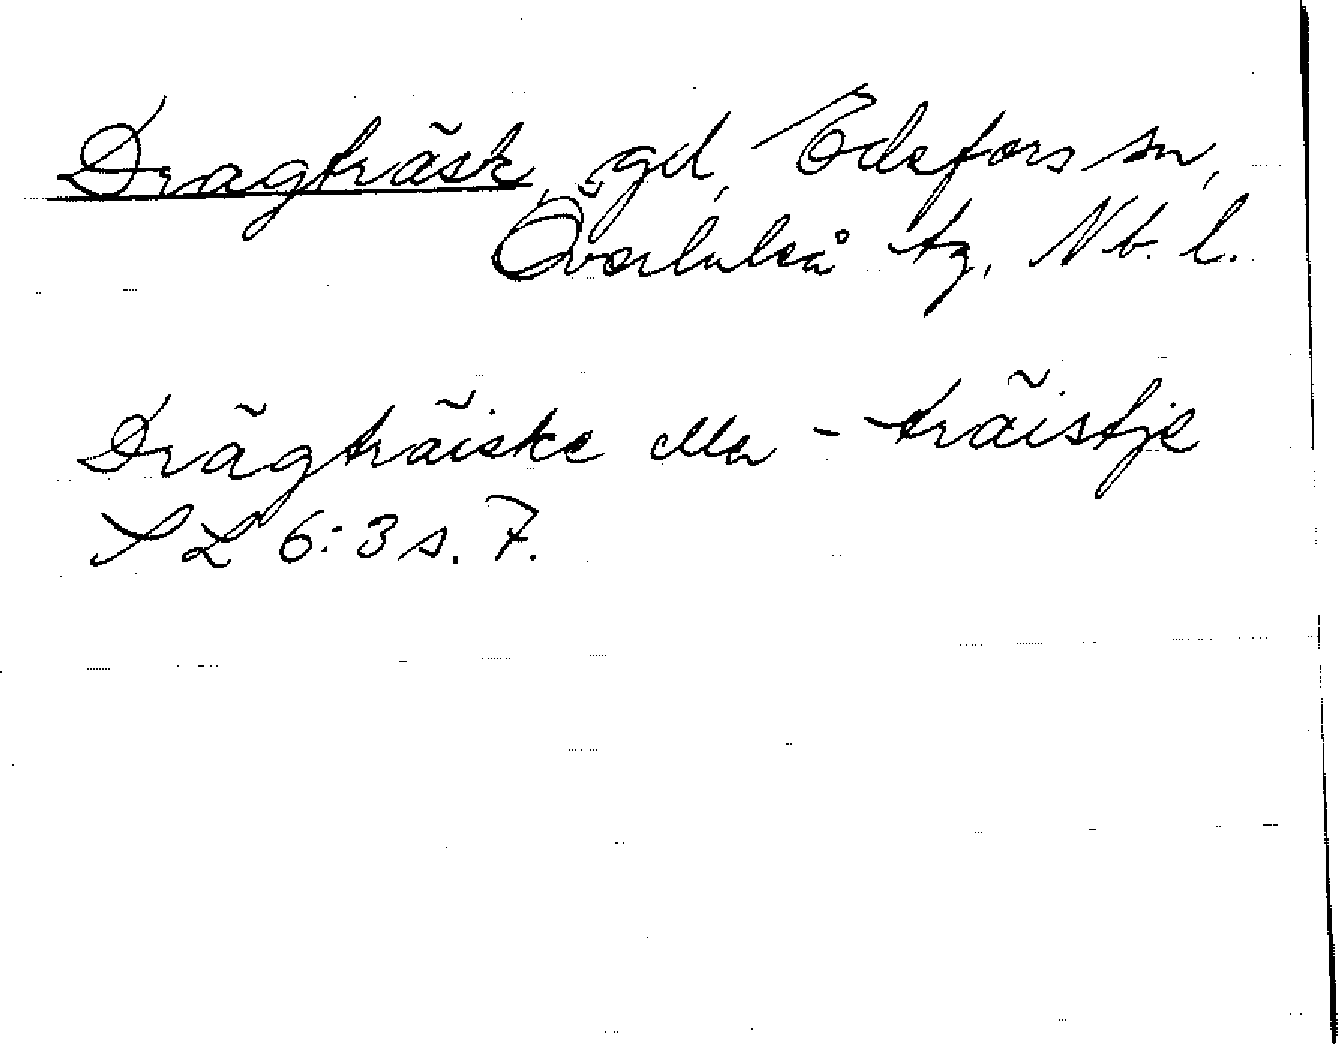 Dragträsk, gd, Edefors sn,
Överluleå tg, Nb. l.
Drägträiske eller -träistje
SL 6:3 s. 7.